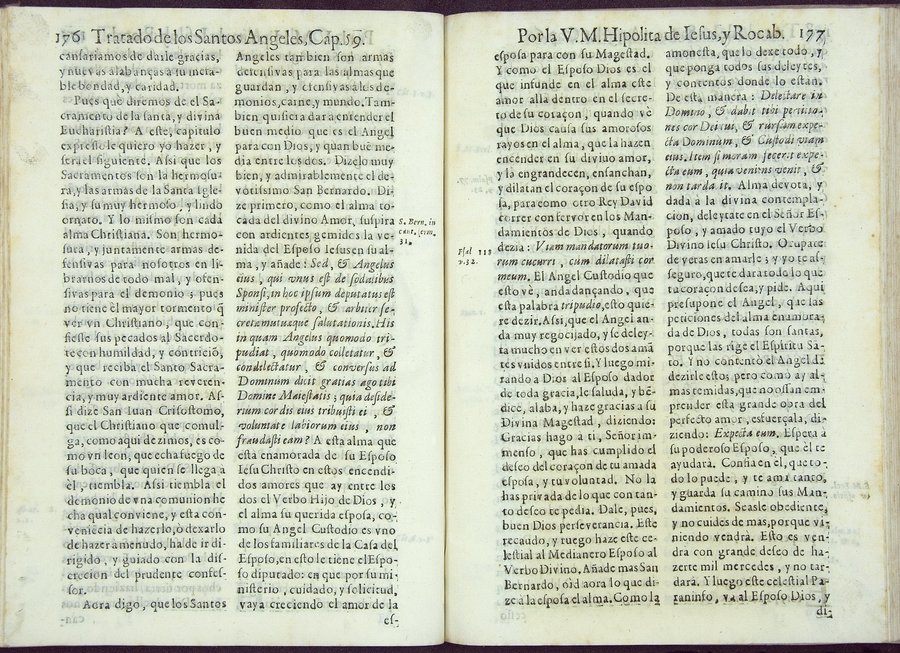 176 Tratado de los Santos Angeles, Cap. 59.
cansariamos de darle gracias,
y nuevas alabanças a su inefa-
ble bondad, y caridad.
Pues que diremos de el Sa-
cramento de la santa, y divina
Eucharistia? A este, capitulo
expresso le quiero yo hazer, y
serà el siguiente. Assi que los
Sacramentos son la hermosu-
ra, y las armas de la Santa Igle-
sia, y su muy hermoso, y lindo
ornato. Y lo mismo son cada
alma Christiana. Son hermo-
sura, y juntamente armas de-
fensivas para nosotros en li-
brarnos de todo mal, y ofen-
sivas para el demonio; pues
no tiene èl mayor tormento q̃
ver vn Christiano, que con-
fiesse sus pecados al Sacerdo-
te con humildad, y contriciõ,
y que reciba el Santo Sacra-
mento con mucha reveren-
cia, y muy ardiente amor. As-
si dize San Iuan Crisostomo,
que el Christiano que comul-
ga, como aqui dezimos, es co-
mo vn leon, que echa fuego de
su boca, que quien se llega à
èl, tiembla. Assi tiembla el
demonio de vna comunion he
cha qual conviene, y esta con-
veniecia de hazerlo, ò dexarlo
de hazer à menudo, ha de ir di-
rigido, y guiado con la dis-
crecion del prudente confes-
sor.
Aora digo, que los Santos
Angeles tambien son armas
defensivas para las almas que
guardan, y ofensivas à los de-
monios, carne, y mundo. Tam-
bien quisiera dar a entender el
buen medio que es el Angel
para con Dios, y quan buẽ me-
dia entre los dos. Dizelo muy
bien, y admirablemente el de-
votissimo San Bernardo. Di-
ze primero, como el alma to-
cada del divino Amor, suspira
con ardientes gemidos la ve-
nida del Esposo Iesus en su al-
ma, y añade: Sed, & Angelus
eius, qui vnus est de sodalibus
Sponsi, in hoc ipsum deputatus est
minister profecto, & arbiter se-
cretæ mutuæque salutationis. His
in quam Angelus quomodo tri-
pudiat, quomodo colletatur, &
condelectatur, & conversus ad
Dominum dicit gratias ago tibi
Domine Maiestatis; quia deside-
rium cordis eius tribuisti ei, &
voluntate labiorum eius, non
fraudasti eam? A esta alma que
esta enamorada de su Esposo
Iesu Christo en estos encendi-
dos amores que ay entre los
dos el Verbo Hijo de Dios, y
el alma su querida esposa, co-
mo su Angel Custodio es vno
de los familiares de la Casa del
Esposo, en esto le tiene el Espo-
so diputado: en que por su mi-
nisterio, cuidado, y solicitud,
vaya creciendo el amor de la
es-
S. Bern. in
cant. serm.
31.
Por la V. M. Hipolita de Iesus, y Rocab. 177
esposa para con su Magestad.
Y como el Esposo Dios es el
que infunde en el alma este
amor alla dentro en el secre-
to de su coraçon, quando vè
que Dios causa sus amorosos
rayos en el alma, que la hazen
encender en su divino amor,
y la engrandecen, ensanchan,
y dilatan el coraçon de su espo
sa, para como otro Rey David
correr con fervor en los Man-
damientos de Dios, quando
dezia: Viam mandatorum tuo-
rum cucurri, cum dilatasti cor
meum. El Angel Custodio que
esto vè, anda dançando, que
esta palabra tripudio, esto quie-
re dezir. Assi, que el Angel an-
da muy regocijado, y se deley-
ta mucho en ver estos dos amã
tes vnidos entre si. Y luego mi-
rando a Dios al Esposo dador
de toda gracia, le saluda, y bẽ-
dice, alaba, y haze gracias a su
Divina Magestad, diziendo:
Gracias hago a ti, Señor im-
menso, que has cumplido el
deseo del coraçon de tu amada
esposa, y tu voluntad. No la
has privada de lo que con tan-
to deseo te pedia. Dale, pues,
buen Dios perseverancia. Este
recaudo, y ruego haze este ce-
lestial Medianero Esposo al
Verbo Divino. Añade mas San
Bernardo, oìd aora lo que di-
ze à la esposa el alma. Como la
Psal 118
v.32.
amonesta, que lo dexe todo, y
que ponga todos sus deleytes,
y contentos donde lo estan.
De esta manera: Delectare in
Domino, & dabit tibi petitio-
nes cor dei tui, & rursum expe-
cta Dominum, & Custodi viam
eius. Item si moram fecerit expe-
cta eum, quia veniens venit, &
non tardabit. Alma devota, y
dada à la divina contempla-
cion, deleytate en el Señor Es-
poso, y amado tuyo el Verbo
Divino Iesu Christo. Ocupate
de veras en amarle; y yo te as-
seguro, que te dara todo lo que
tu coraçon desea, y pide. Aqui
presupone el Angel, que las
peticiones del alma enamora-
da de Dios, todas son santas,
porque las rige el Espiritu Sã-
to. Y no contẽto el Angel dī
dezirle estos; pero como ay al-
mas temidas, que no ossan em-
prender esta grande obra del
perfecto amor, esfuerçala, di-
ziendo: Expecta eum. Espera à
su poderoso Esposo, que èl te
ayudarà. Confia en el, que to-
do lo puede, y te ama tanto,
y guarda su camino sus Man-
damientos. Seasle obediente,
y no cuides de mas, porque vi-
niendo vendrà. Esto es ven-
drà con grande deseo de ha-
zerte mil mercedes, y no tar-
darà. Y luego este celestial Pa-
raninfo, va al Esposo Dios, y
di-